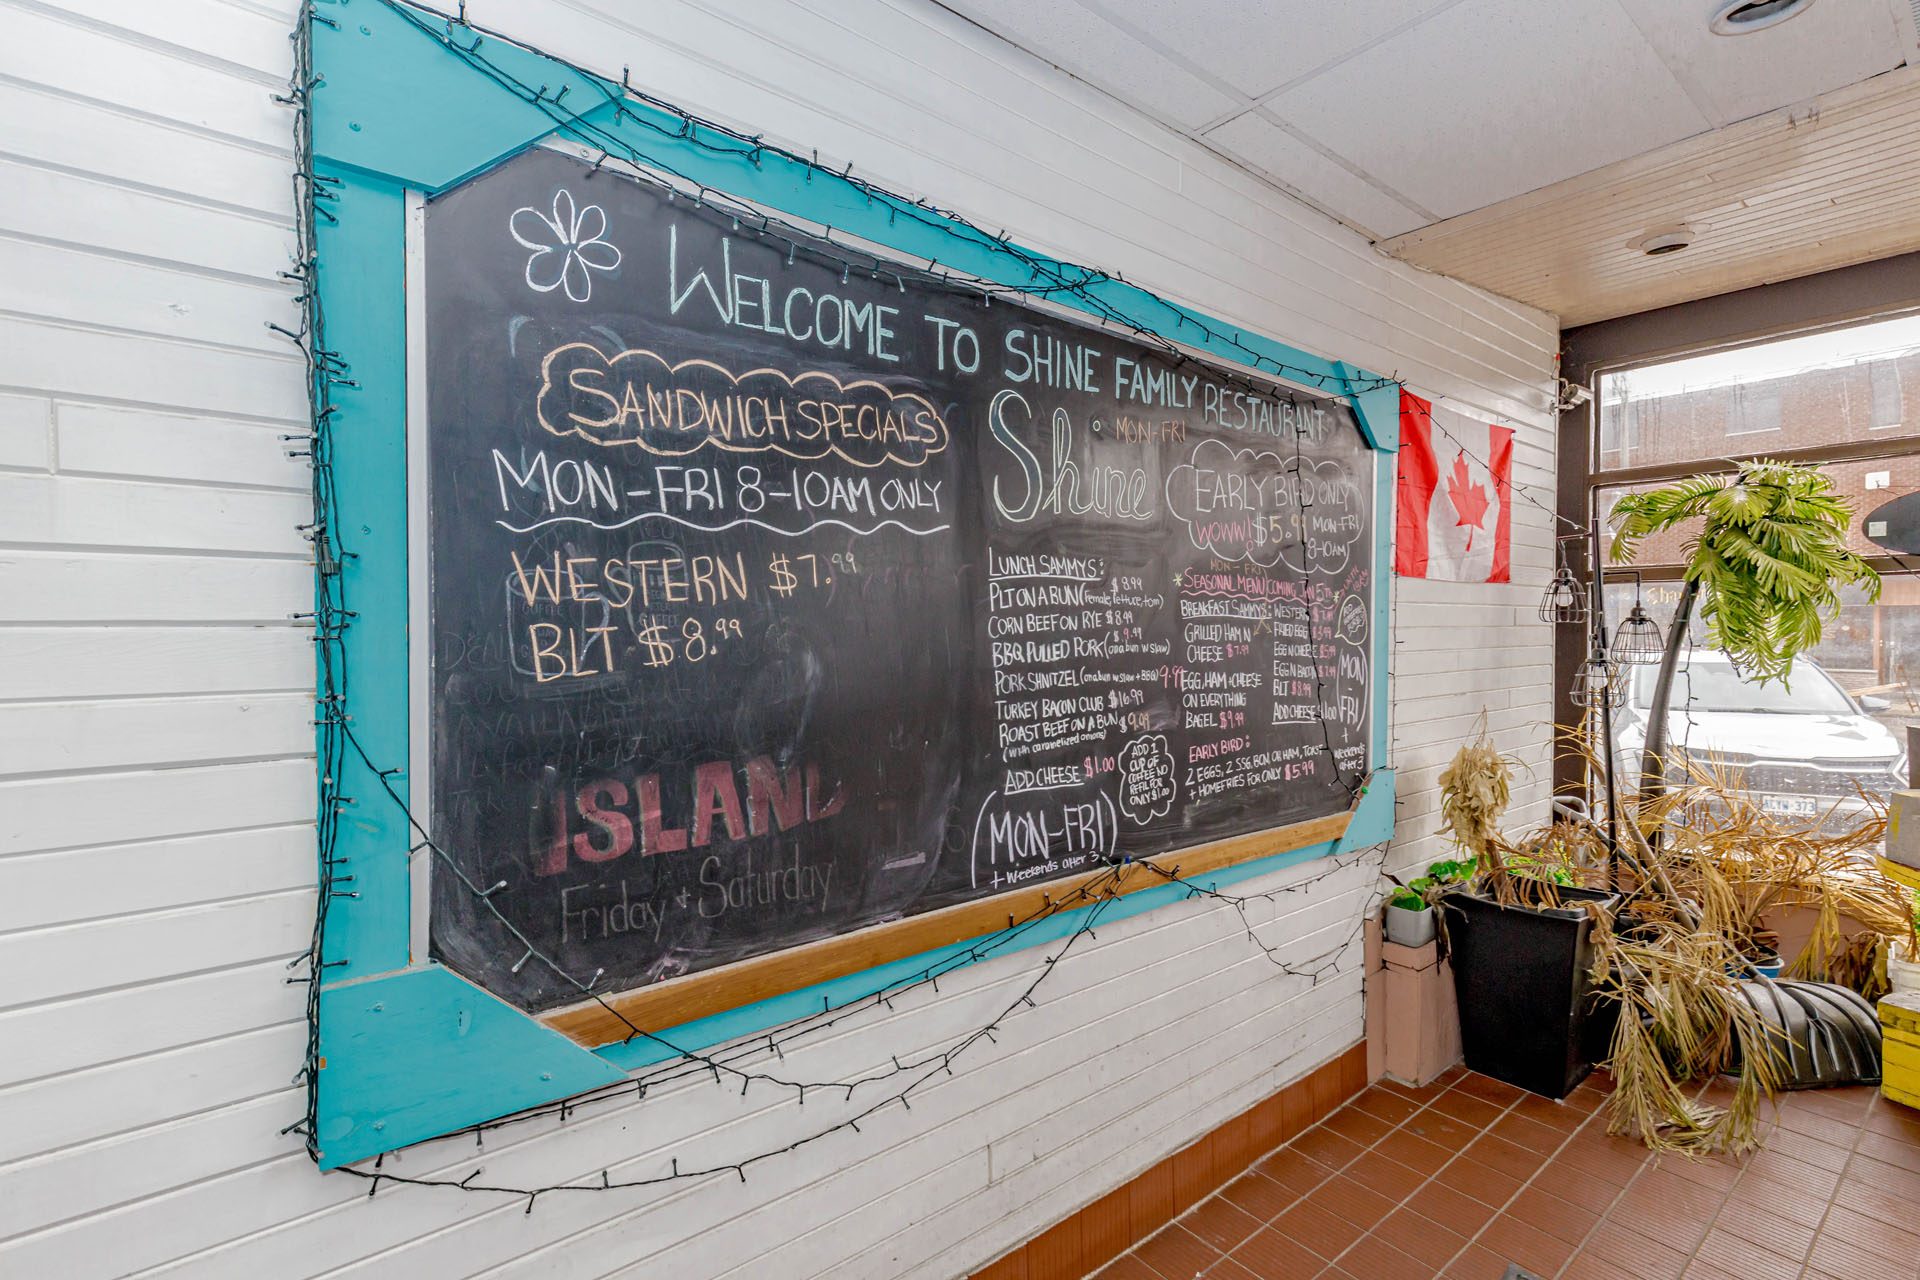 WELCOME TO SHINE FAMILY RESTAURANT
SANDWICH SPECIALS
MON-FRI 8-10AM ONLY
WESTERN $7.99
BLT $8.99
ISLAND
Friday + Saturday
Shine
MON-FRI
LUNCH SAMMYS:
PLT ON A BUN (Pemeale, lettuce, tom) $8.99
CORN BEEF ON RYE $8.99
BBQ PULLED PORK (on a bun w slaw) $9.99
PORK SHNITZEL (on a bun w slaw + BBQ) 9.99
TURKEY BACON CLUB $16.99
ROAST BEEF ON A BUN $9.99
(with caramelized onions)
ADD CHEESE $1.00
(MON-FRI)
+ Weekends after 3
ADD 1
CUP OF
COFFEE NO
REFIL FOR
ONLY $1.00
EARLY BIRD ONLY
WOWW! $5.99 MON-FRI
8-10AM
MON-FRI
*SEASONAL MENU COMING JAN 5TH*
BREAKFAST SAMMYS:
GRILLED HAM N
CHEESE $7.99
EGG, HAM & CHEESE
ON EVERYTHING
BAGEL $9.99
WESTERN
FRIED EGG
EGG N CHEESE
EGG N BACON
BLT $8.99
ADD CHEESE $1.00
(MON-FRI)
+ weekends
after 3
EARLY BIRD:
2 EGGS, 2 SSG, BCN, OR HAM, TOAST
+ HOMEFRIES FOR ONLY $5.99